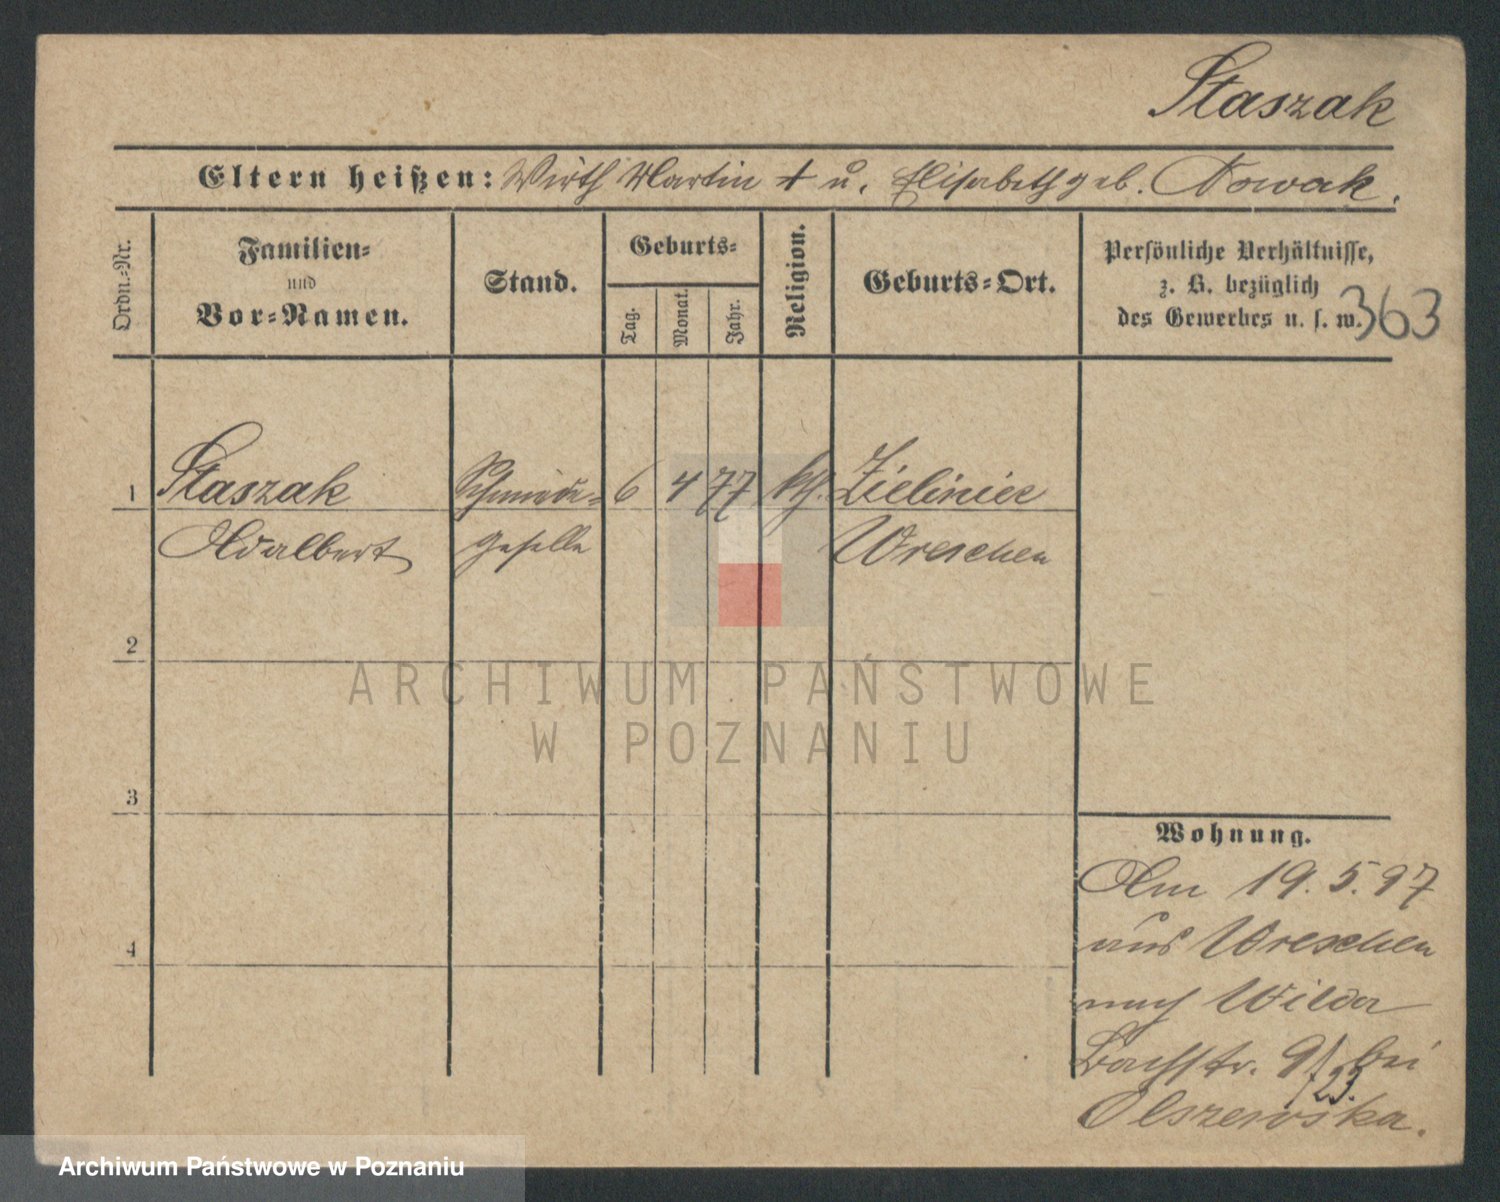 Staszak
Eltern heißen: Wirth Martin + u. Elisabeth geb. Nowak.
Ordn.-Nr.
Familien-
und
Vor-Namen.
Stand.
Geburts-
Tag.
Monat.
Jahr.
Religion.
Geburts-Ort.
Persönliche Verhältnisse,
z. B. bezüglich
des Gewerbes u. s. w.
363
1 Staszak Schmiede- 6 4 77 kth. Zieliniec
Adalbert geselle Wreschen
2
3
4
Wohnung.
Am 19.5.97
aus Wreschen
nach Wilda
Bachstr. 9/ bei
/23.
Olszewska.
ARCHIWUM PAŃSTWOWE
W POZNANIU
Archiwum Państwowe w Poznaniu